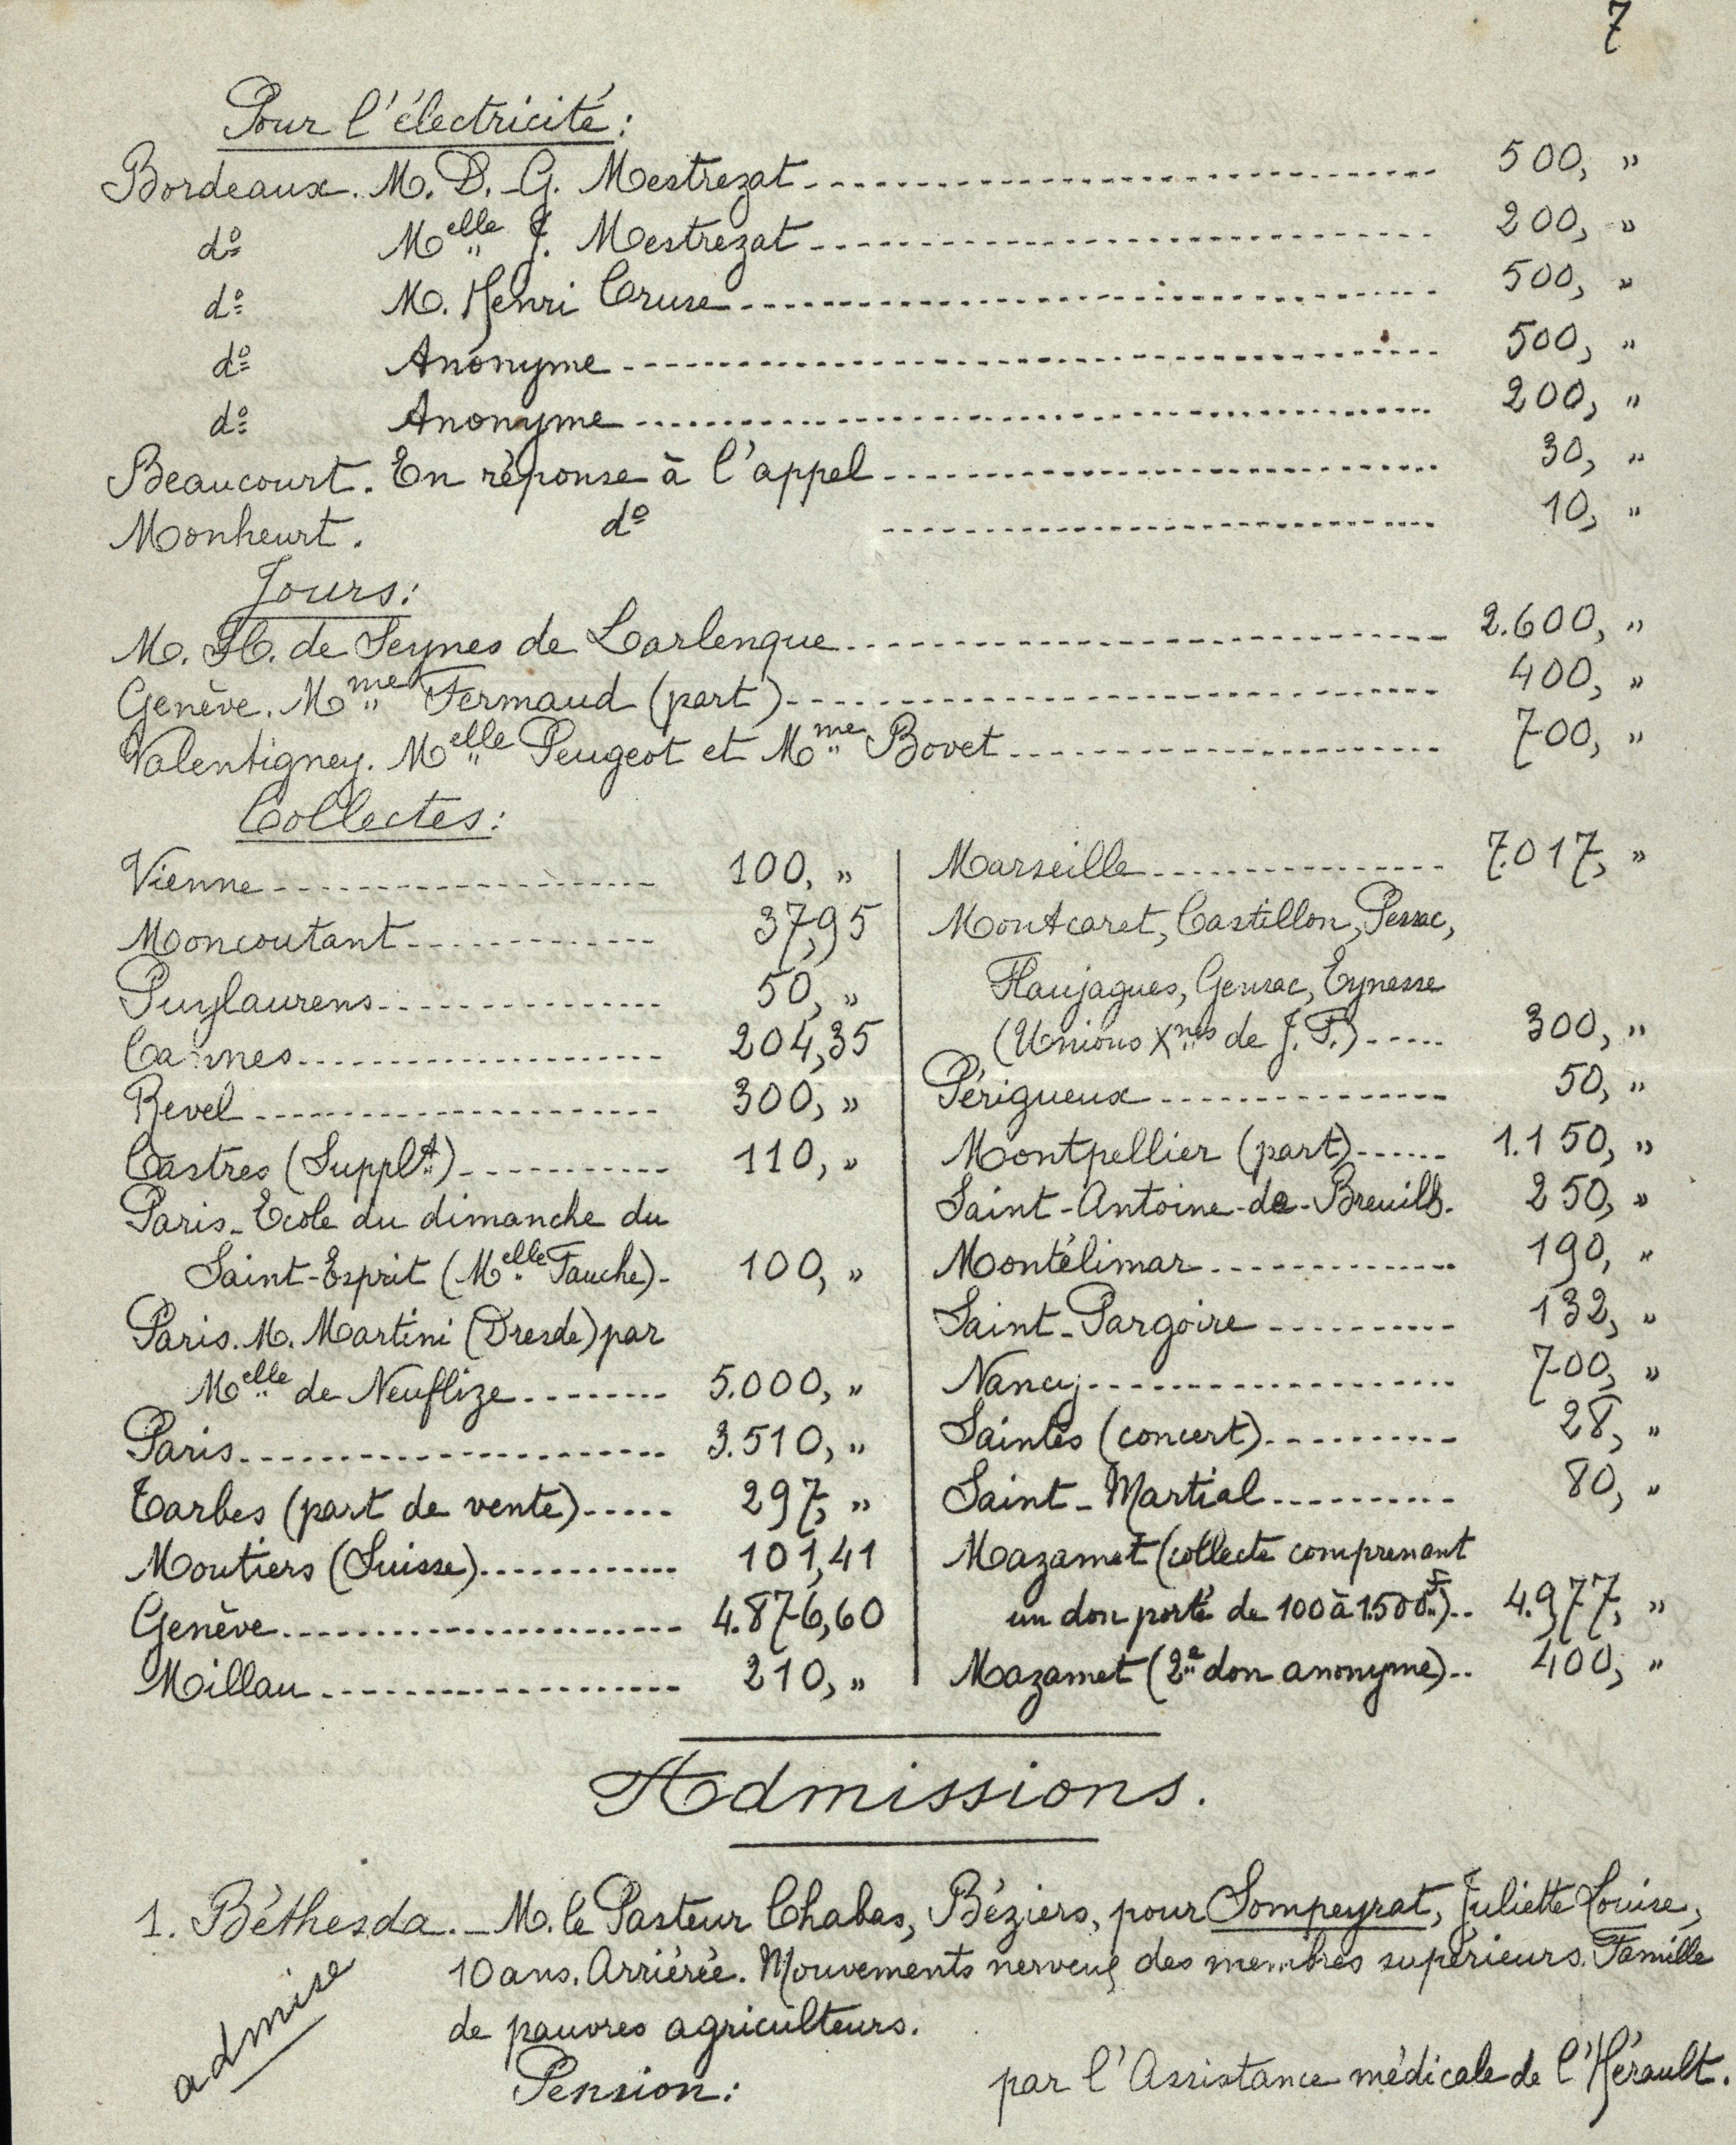 7
Pour l'électricité:
Bordeaux. M. D.-G. Mestrezat 500, "
do Melle J. Mestrezat 200, "
do M. Henri Cruse 500, "
do Anonyme 500, "
do Anonyme 200, "
Beaucourt. En réponse à l'appel 30, "
Monheurt. do 10, "
Jours:
M. H. de Seynes de Larlenque 2.600, "
Genève. Mme Fermaud (part) 400, "
Valentigney. Melle Peugeot et Mme Bovet 700, "
Collectes:
Vienne 100, "
Moncoutant 37,95
Puylaurens 50, "
Cannes 204,35
Revel 300, "
Castres (Supplt) 110, "
Paris-Ecole du dimanche du
Saint-Esprit (Melle Fauche) 100, "
Paris. M. Martini (Dresde) par
Melle de Neuflize 5.000, "
Paris 3.510, "
Tarbes (part de vente) 297, "
Moutiers (Suisse) 101,41
Genève 4.876,60
Millau 210, "
Marseille 7.017, "
Montcaret, Castillon, Pessac,
Flaujagues, Gensac, Eynesse
(Unions Xnes de J. F.) 300, "
Périgueux 50, "
Montpellier (part) 1.150, "
Saint-Antoine-de-Breuilh. 250, "
Montélimar 190, "
Saint-Pargoire 132, "
Nancy 700, "
Saintes (concert) 28, "
Saint-Martial 80, "
Mazamet (collecte comprenant
un don porté de 100 à 1.500 f) 4.977, "
Mazamet (2e don anonyme) 400, "
Admissions.
1. Béthesda. - M. le Pasteur Chabas, Béziers, pour Sompeyrat, Juliette Louise,
10 ans. Arriérée. Mouvements nerveux des membres supérieurs. Famille
de pauvres agriculteurs.
admise
Pension: par l'Assistance médicale de l'Hérault.